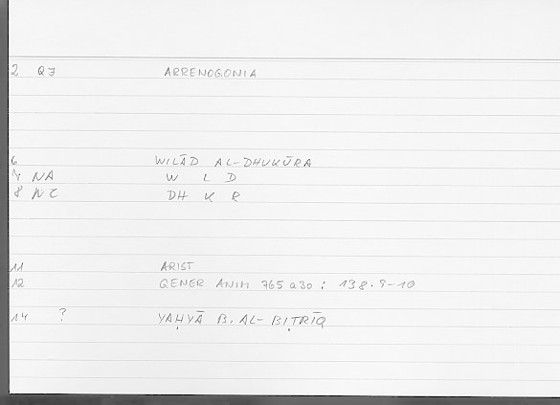 2 QJ ARRENOGONIA
6 WILĀD AL-DHUKŪRA
7 NA W L D
8 NC DH K R
11 ARIST
12 GENER ANIM 765 a 30 : 138.9-10
14 ? YAḤYĀ B. AL-BIṬRĪQ